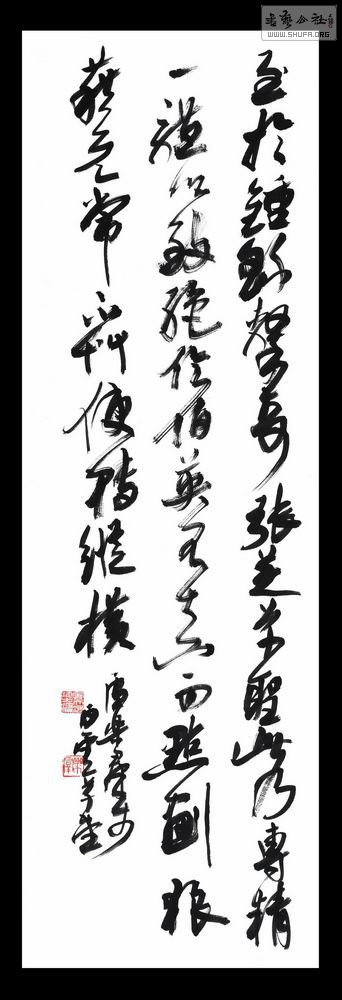 書藝公社
WWW.SHUFA.ORG
至於鍾繇隸奇張芝草聖此乃專精
一體以致絕倫伯英不真而點畫狼
藉元常不艸使轉縱橫